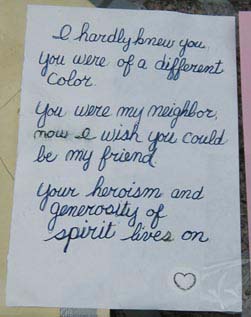 I hardly knew you,
you were of a different
color.
You were my neighbor,
now I wish you could
be my friend.
Your heroism and
generosity of
spirit lives on